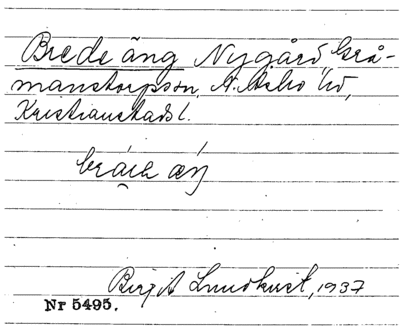 Brede äng Nygård, Grå-
manstorpssn. N. Åsbo hd,
Kristianstads l.
Birgit Lundkvist, 1937
Nr 5495.